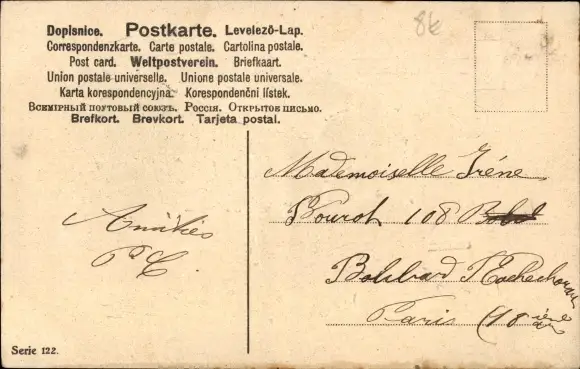 Dopisnice. Postkarte. Levelező-Lap.
Correspondenzkarte. Carte postale. Cartolina postale.
Post card. Weltpostverein. Briefkaart.
Union postale universelle. Unione postale universale.
Karta korespondencyjna. Korespondenční lístek.
Всемірный почтовый союзъ. Россія. Открытое письмо.
Brefkort. Brevkort. Tarjeta postal.
86
Mademoiselle Iréne
Pourot 108
Rochechouart
Paris (18 ième
Amitiés
P C
Serie 122.